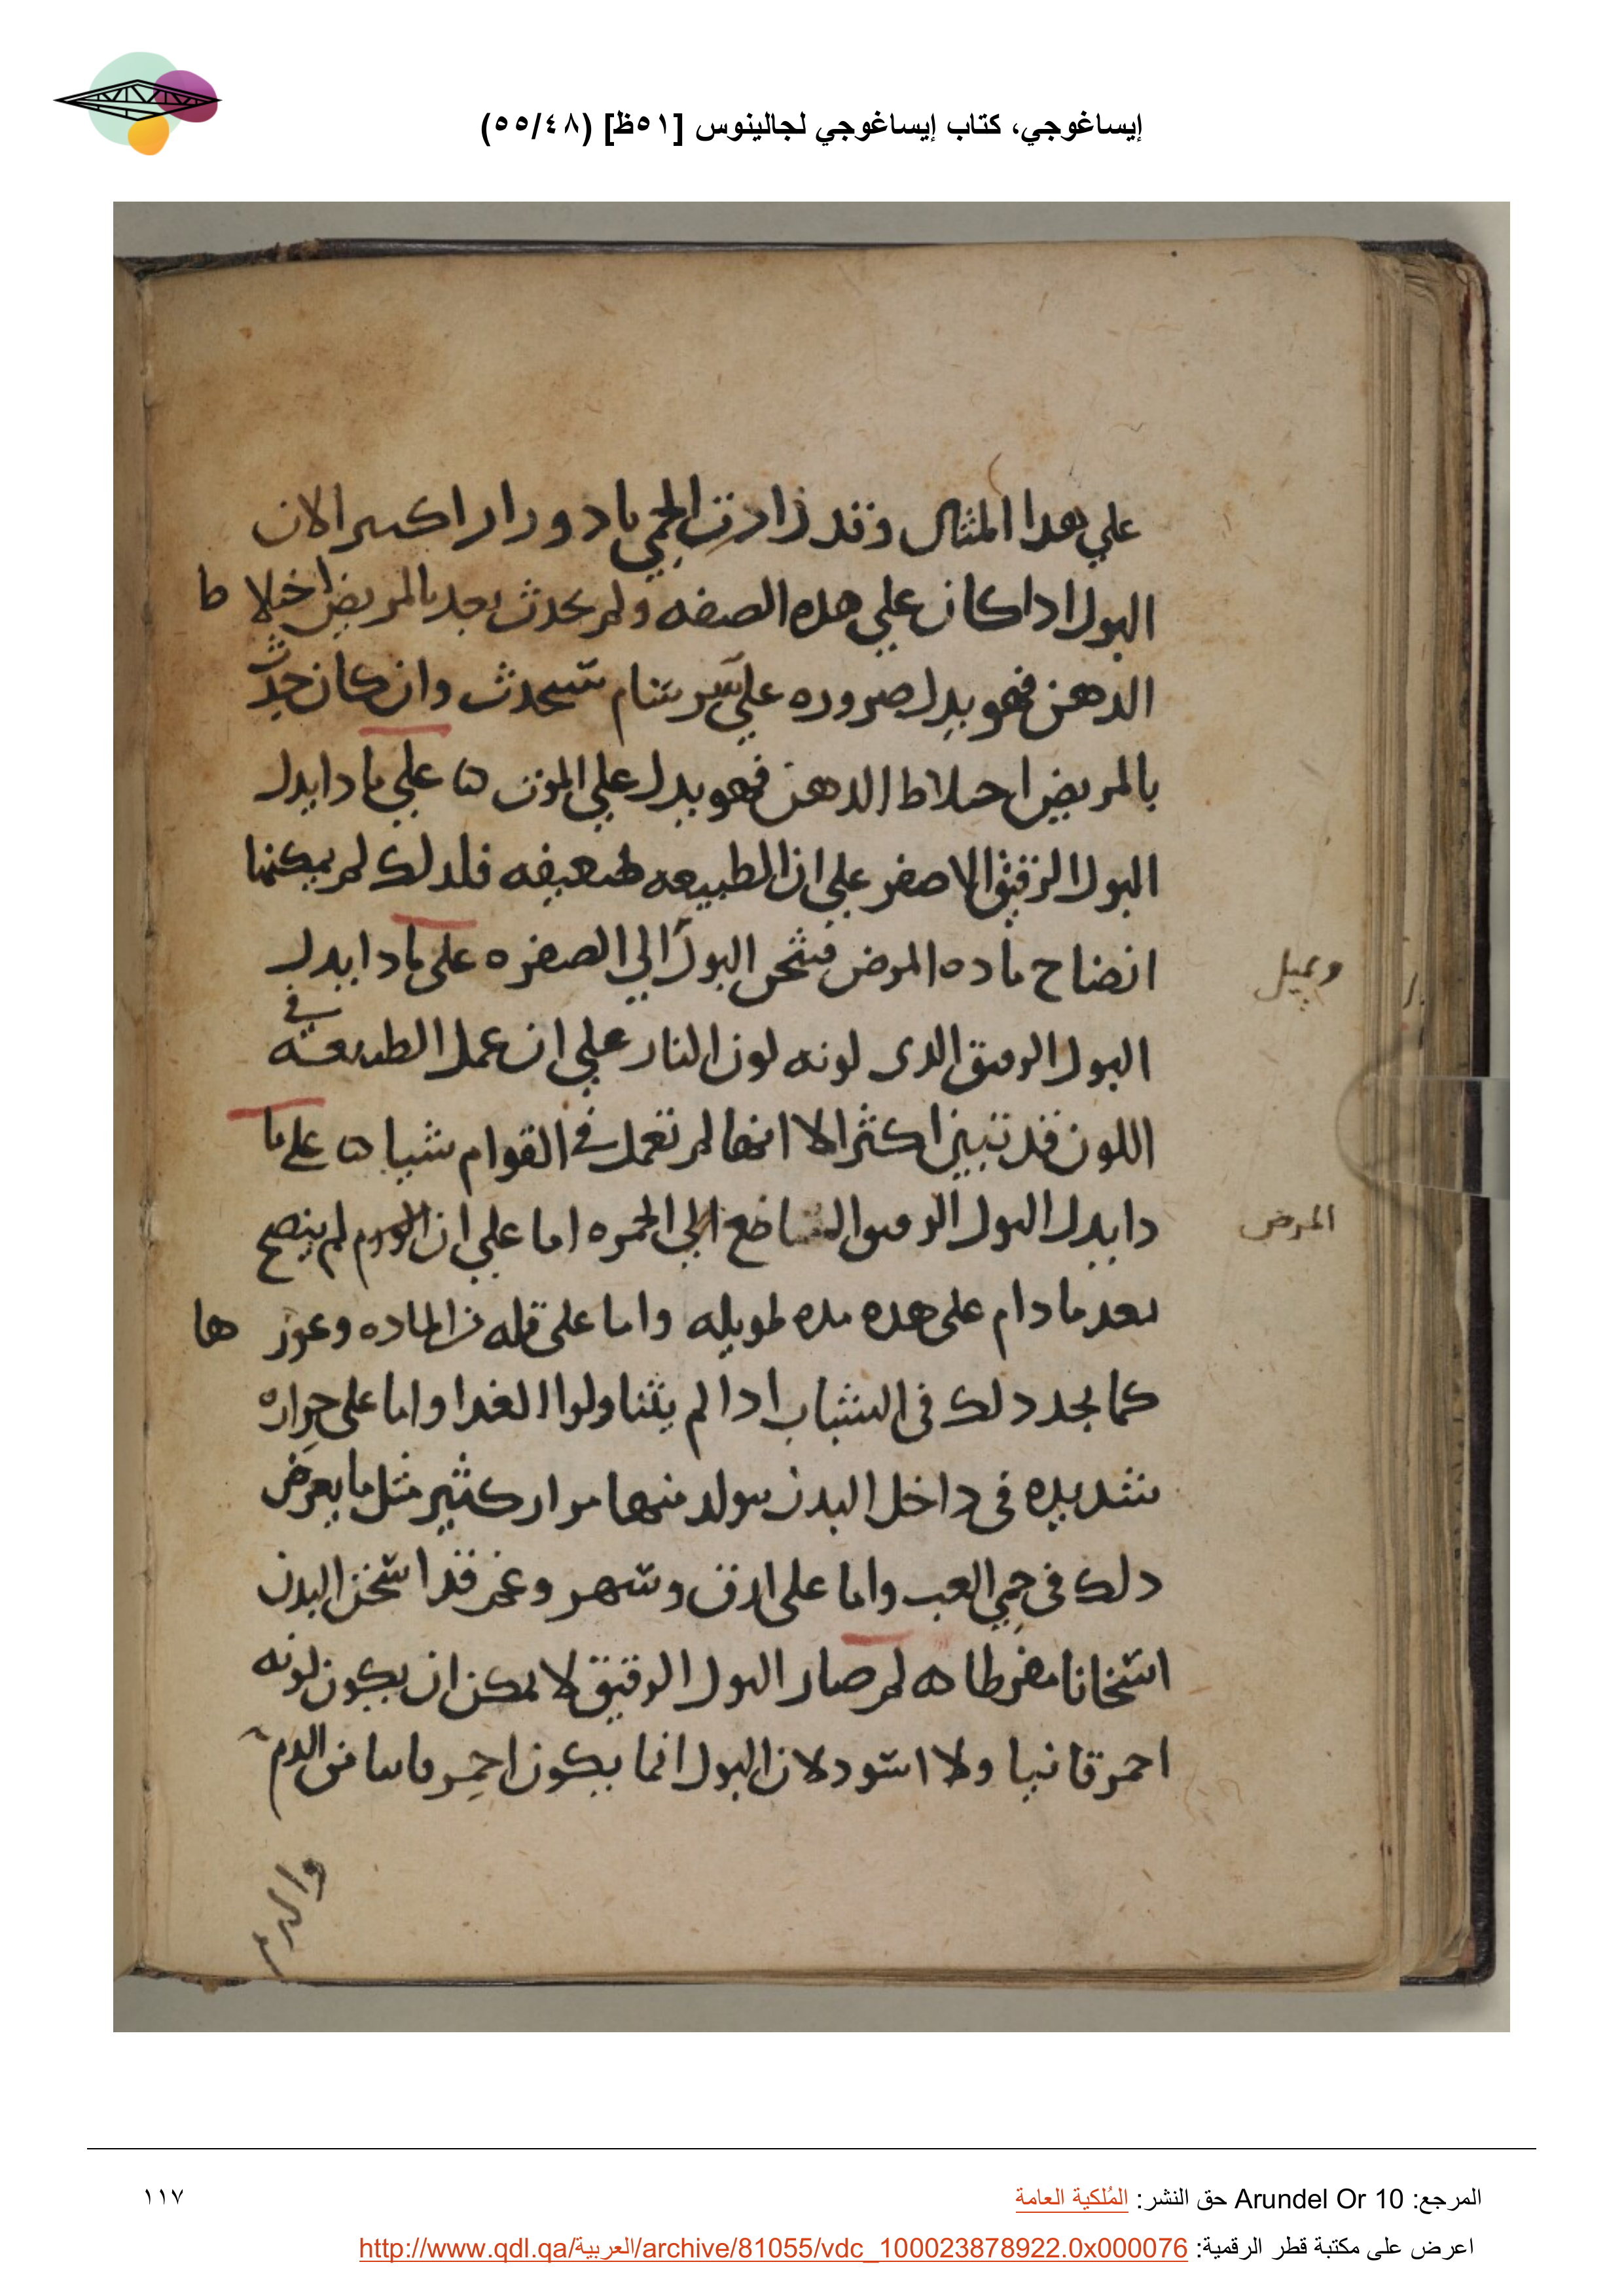 إيساغوجي، كتاب إيساغوجي لجالينوس [٥١ظ] (٥٥/٤٨)
علي هدا المثال وقد زادت الحمي بادوار اكثر الان
البول اداكان علي هده الصفه ولم يحدث بعد بالمريض اختلاط
الدهن فهو يدل صروره علي سرسام سيحدث وان كان حدث
بالمريض احتلاط الدهن فهو يدل علي الموت ه علي مادا يدل
البول الرقيق الاصفر علي ان الطبيعه ضعيفه فلدلك لم يمكنها
انضاح ماده المرض فتثخن البول الي الصفره على مادا يدل
ويميل
البول الرقيق الدى لونه لون النار علي ان عمل الطبيعه في
اللون قد تبين اكثر الا انها لم تعمل في القوام شيا ه على ما
دا يدل البول الرقيق الناصع الي الحمره اما علي ان الورم لم ينضج
المرض
بعد ما دام على هده مده طويله واما على قله من الماده وعوزها
كما نجد دلك في الشباب ادا لم يتناولوا الغدا واما على حراره
شديده في داخل البدن يتولد منها مرار كثير مثل ما يعرض
دلك في حمي الغب واما على ارق وسهر وغم قد اسخن البدن
اسخانا مفرطا ه لم صار البول الرقيق لا يمكن ان يكون لونه
احمر قانيا ولا اسود لان البول انما يكون احمر قانيا من الدم
والدم
المرجع: Arundel Or 10 حق النشر: المُلكية العامة
١١٧
اعرض على مكتبة قطر الرقمية: http://www.qdl.qa/العربية/archive/81055/vdc_100023878922.0x000076